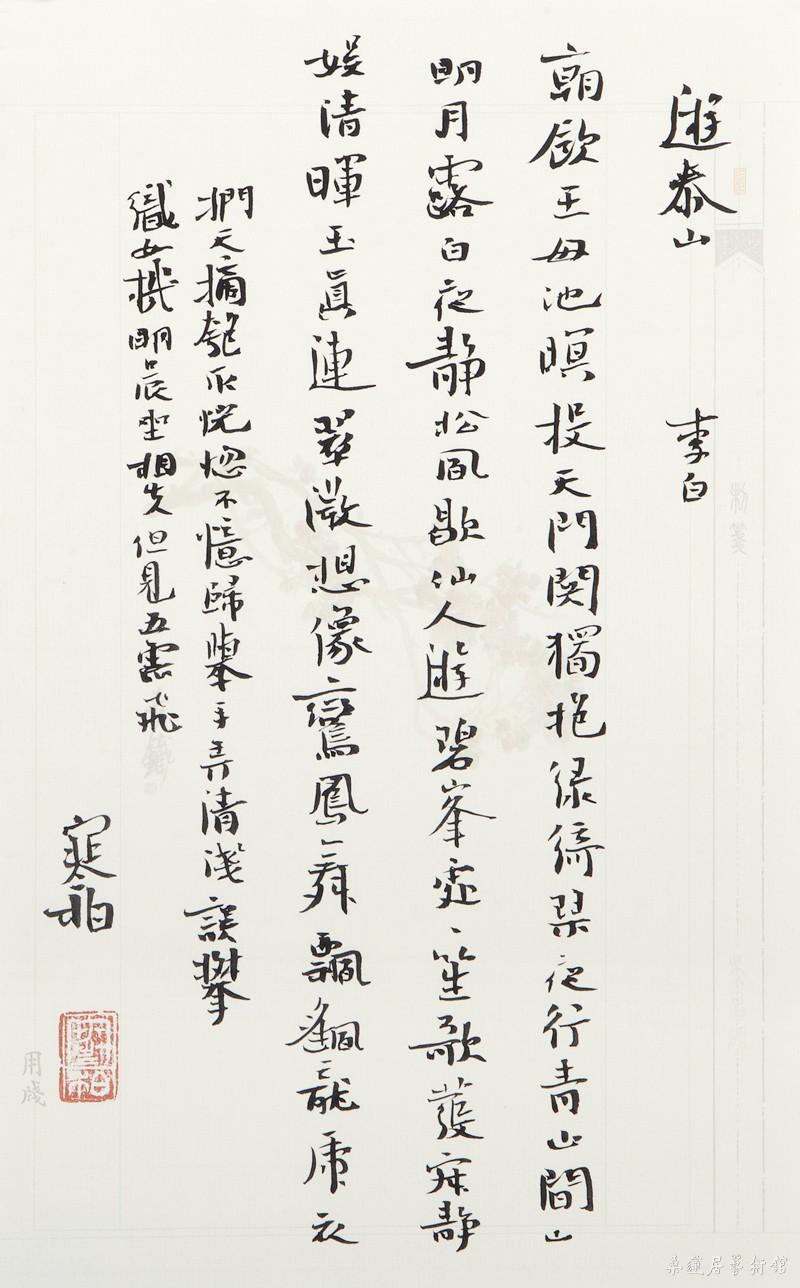 遊泰山 李白
朝飲王母池暝投天門関獨抱綠綺琴夜行青山間山
明月露白夜靜松風歇仙人遊碧峯處〻笙歌發寂靜
娱清暉玉眞連翠微想像鸞鳳舞飄颻龍虎衣
捫天摘匏瓜恍惚不憶歸舉手弄清淺誤攀
織女機明晨坐相失但見五雲飛
寒柏
用牋
桑蓮居藝術館